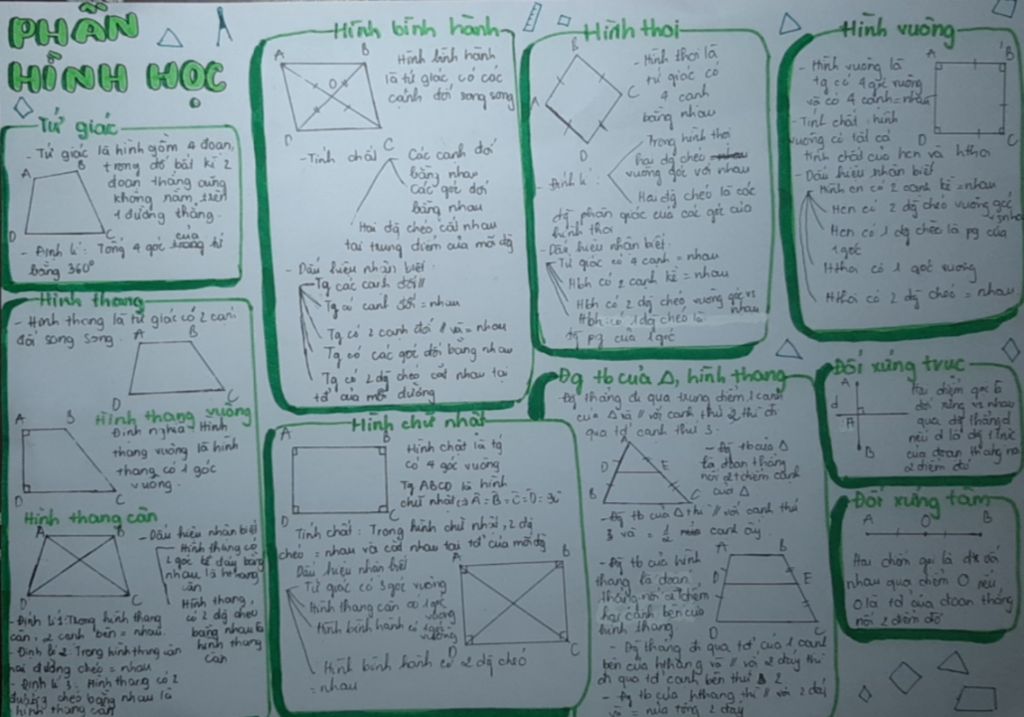 PHẦN
HÌNH HỌC
Tứ giác
- Tứ giác là hình gồm 4 đoạn,
trong đó bất kì 2
đoạn thẳng cũng
không nằm trên
1 đường thẳng.
A
B
D
C
- Định lí: Tổng 4 góc của tứ
bằng 360°
Hình thang
- Hình thang là tứ giác có 2 cạnh
đối song song.
A
B
D
C
Hình thang vuông
Định nghĩa: Hình
thang vuông là hình
thang có 1 góc
vuông.
A
B
D
C
Hình thang cân
A
B
D
C
- Dấu hiệu nhận biết
Hình thang có
2 góc kề đáy bằng
nhau là hthang
cân
Hình thang
có 2 đg chéo
bằng nhau là
hình thang
cân
- Định lí 1: Trong hình thang
cân, 2 cạnh bên = nhau.
- Định lí 2: Trong hình thang cân
hai đường chéo = nhau
- Định lí 3: Hình thang có 2
đường chéo bằng nhau là
hình thang cân
Hình bình hành
A
B
O
D
C
Hình bình hành
là tứ giác có các
cạnh đối song song
- Tính chất
Các cạnh đối
bằng nhau
Các góc đối
bằng nhau
Hai đg chéo cắt nhau
tại trung điểm của mỗi đg
- Dấu hiệu nhận biết
Tg các cạnh đối //
Tg có cạnh đối = nhau
Tg có 2 cạnh đối // và = nhau
Tg có các góc đối bằng nhau
Tg có 2 đg chéo cắt nhau tại
tđ của mỗi đường
Hình chữ nhật
A
B
D
C
Hình chất là tg
có 4 góc vuông
Tg ABCD là hình
chữ nhật ⇔ A = B = C = D = 90
Tính chất: Trong hình chữ nhật, 2 đg
chéo = nhau và cắt nhau tại tđ của mỗi đg
Dấu hiệu nhận biết
Tứ giác có 3 góc vuông
Hình thang cân có 1 góc
vuông
Hình bình hành có 1 góc
vuông
Hình bình hành có 2 đg chéo
= nhau
A
B
D
C
Hình thoi
B
A
C
D
- Hình thoi là
tứ giác có
4 cạnh
bằng nhau
- Định lí:
Trong hình thoi
hai đg chéo
vuông góc với nhau
Hai đg chéo là các
đg phân giác của các góc của
hình thoi
- Dấu hiệu nhận biết:
Tứ giác có 4 cạnh = nhau
Hbh có 2 cạnh kề = nhau
Hbh có 2 đg chéo vuông góc vs
nhau
Hbh có 1 đg chéo là
đg pg của 1 góc
Đg tb của Δ, hình thang
Đg thẳng đi qua trung điểm 1 cạnh
của Δ và // với cạnh thứ 2 thì đi
qua tđ cạnh thứ 3.
A
D
E
B
C
- Đg tb của Δ
là đoạn thẳng
nối 2 tđiểm cạnh
của Δ
- Đg tb của Δ thì // với cạnh thứ
3 và = 1/2 cạnh ấy.
- Đg tb của hình
thang là đoạn
thẳng nối 2 điểm
hai cạnh bên của
hình thang
A
B
E
D
C
- Đg thẳng đi qua tđ của 1 cạnh
bên của hthang và // với 2 đáy thì
đi qua tđ cạnh bên thứ 2
- Đg tb của hthang thì // với 2 đáy
và = nửa tổng 2 đáy
Hình vuông
A
B
D
C
- Hình vuông là
tg có 4 góc vuông
và có 4 cạnh = nhau
- Tính chất: hình
vuông có tất cả
tính chất của hcn và hthoi
- Dấu hiệu nhận biết
Hình cn có 2 cạnh kề = nhau
Hcn có 2 đg chéo vuông góc
vs nhau
Hcn có 1 đg chéo là pg của
1 góc
Hthoi có 1 góc vuông
Hthoi có 2 đg chéo = nhau
Đối xứng trục
A
d
B
Hai điểm gọi là
đối xứng vs nhau
qua đg thẳng d
nếu d là đg t.trực
của đoạn thẳng nối
2 điểm đó
Đối xứng tâm
A
O
B
Hai điểm gọi là đx với
nhau qua điểm O nếu
O là tđ của đoạn thẳng
nối 2 điểm đó